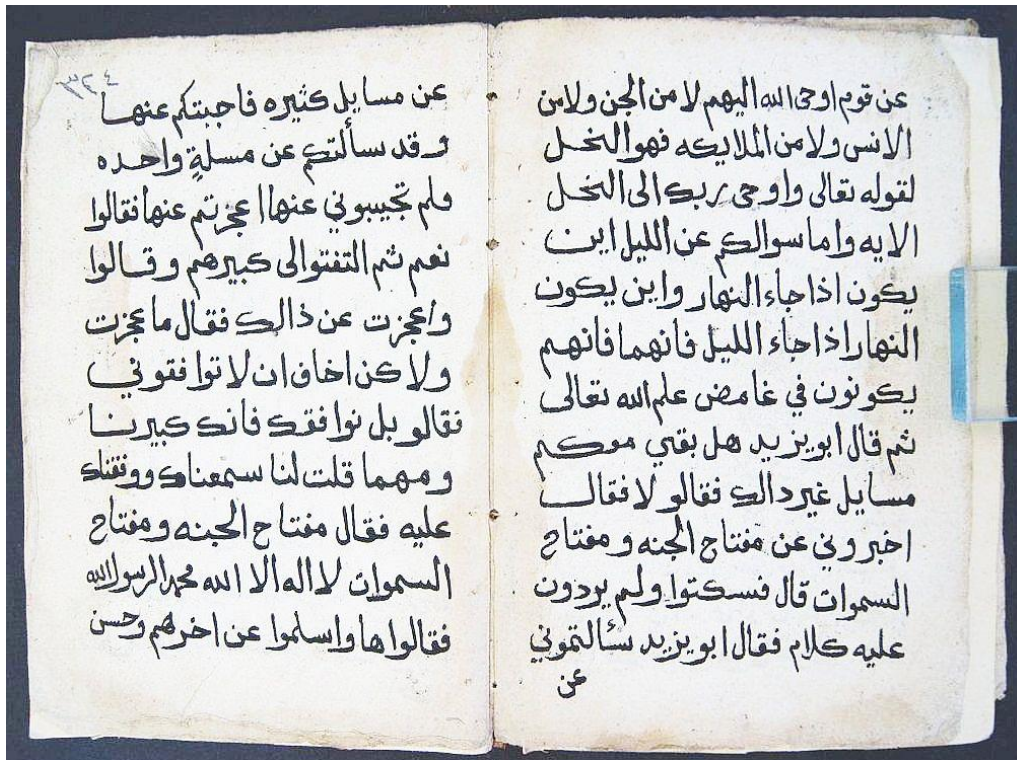 عن قوم اوحى الله اليهم لا من الجن ولا من
الانس ولا من الملايكه فهو النحل
لقوله تعالى واوحى ربك الى النحل
الايه واما سوالكم عن الليل اين
يكون اذا جاء النهار واين يكون
النهار اذا جاء الليل فانهما فانهم
يكونون في غامض علم الله تعالى
ثم قال ابو يزيد هل بقي معكم
مسايل غير ذالك فقالو لا فقال
اخبروني عن مفتاح الجنه ومفتاح
السموات قال فسكتوا ولم يردون
عليه كلام فقال ابو يزيد سئالتموني
عن
٣٢٤
عن مسايل كثيره فاجبتكم عنها
وقد سألتكم عن مسلةٍ واحده
ولم تجيبوني عنها اعجزتم عنها فقالوا
نعم ثم التفتوا الى كبيرهم وقالوا
واعجزت عن ذالك فقال ما عجزت
ولاكن اخاف ان لا توافقوني
فقالو بل نوافقك فانك كبيرنا
ومهما قلت لنا سمعناك ووفقناك
عليه فقال مفتاح الجنه ومفتاح
السموات لا اله الا الله محمد الرسول الله
فقالوا ها واسلموا عن اخرهم وحسن